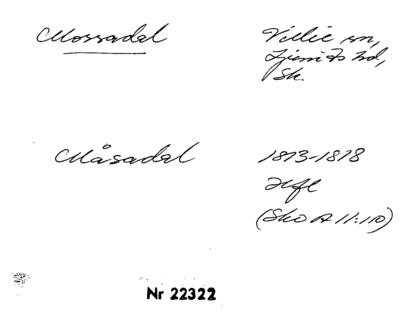 Mossadal Villie sn,
Ljunits hd,
Sk.
Måsadal 1813-1818
Hfl
(Sko A 11:110)
Nr 22322